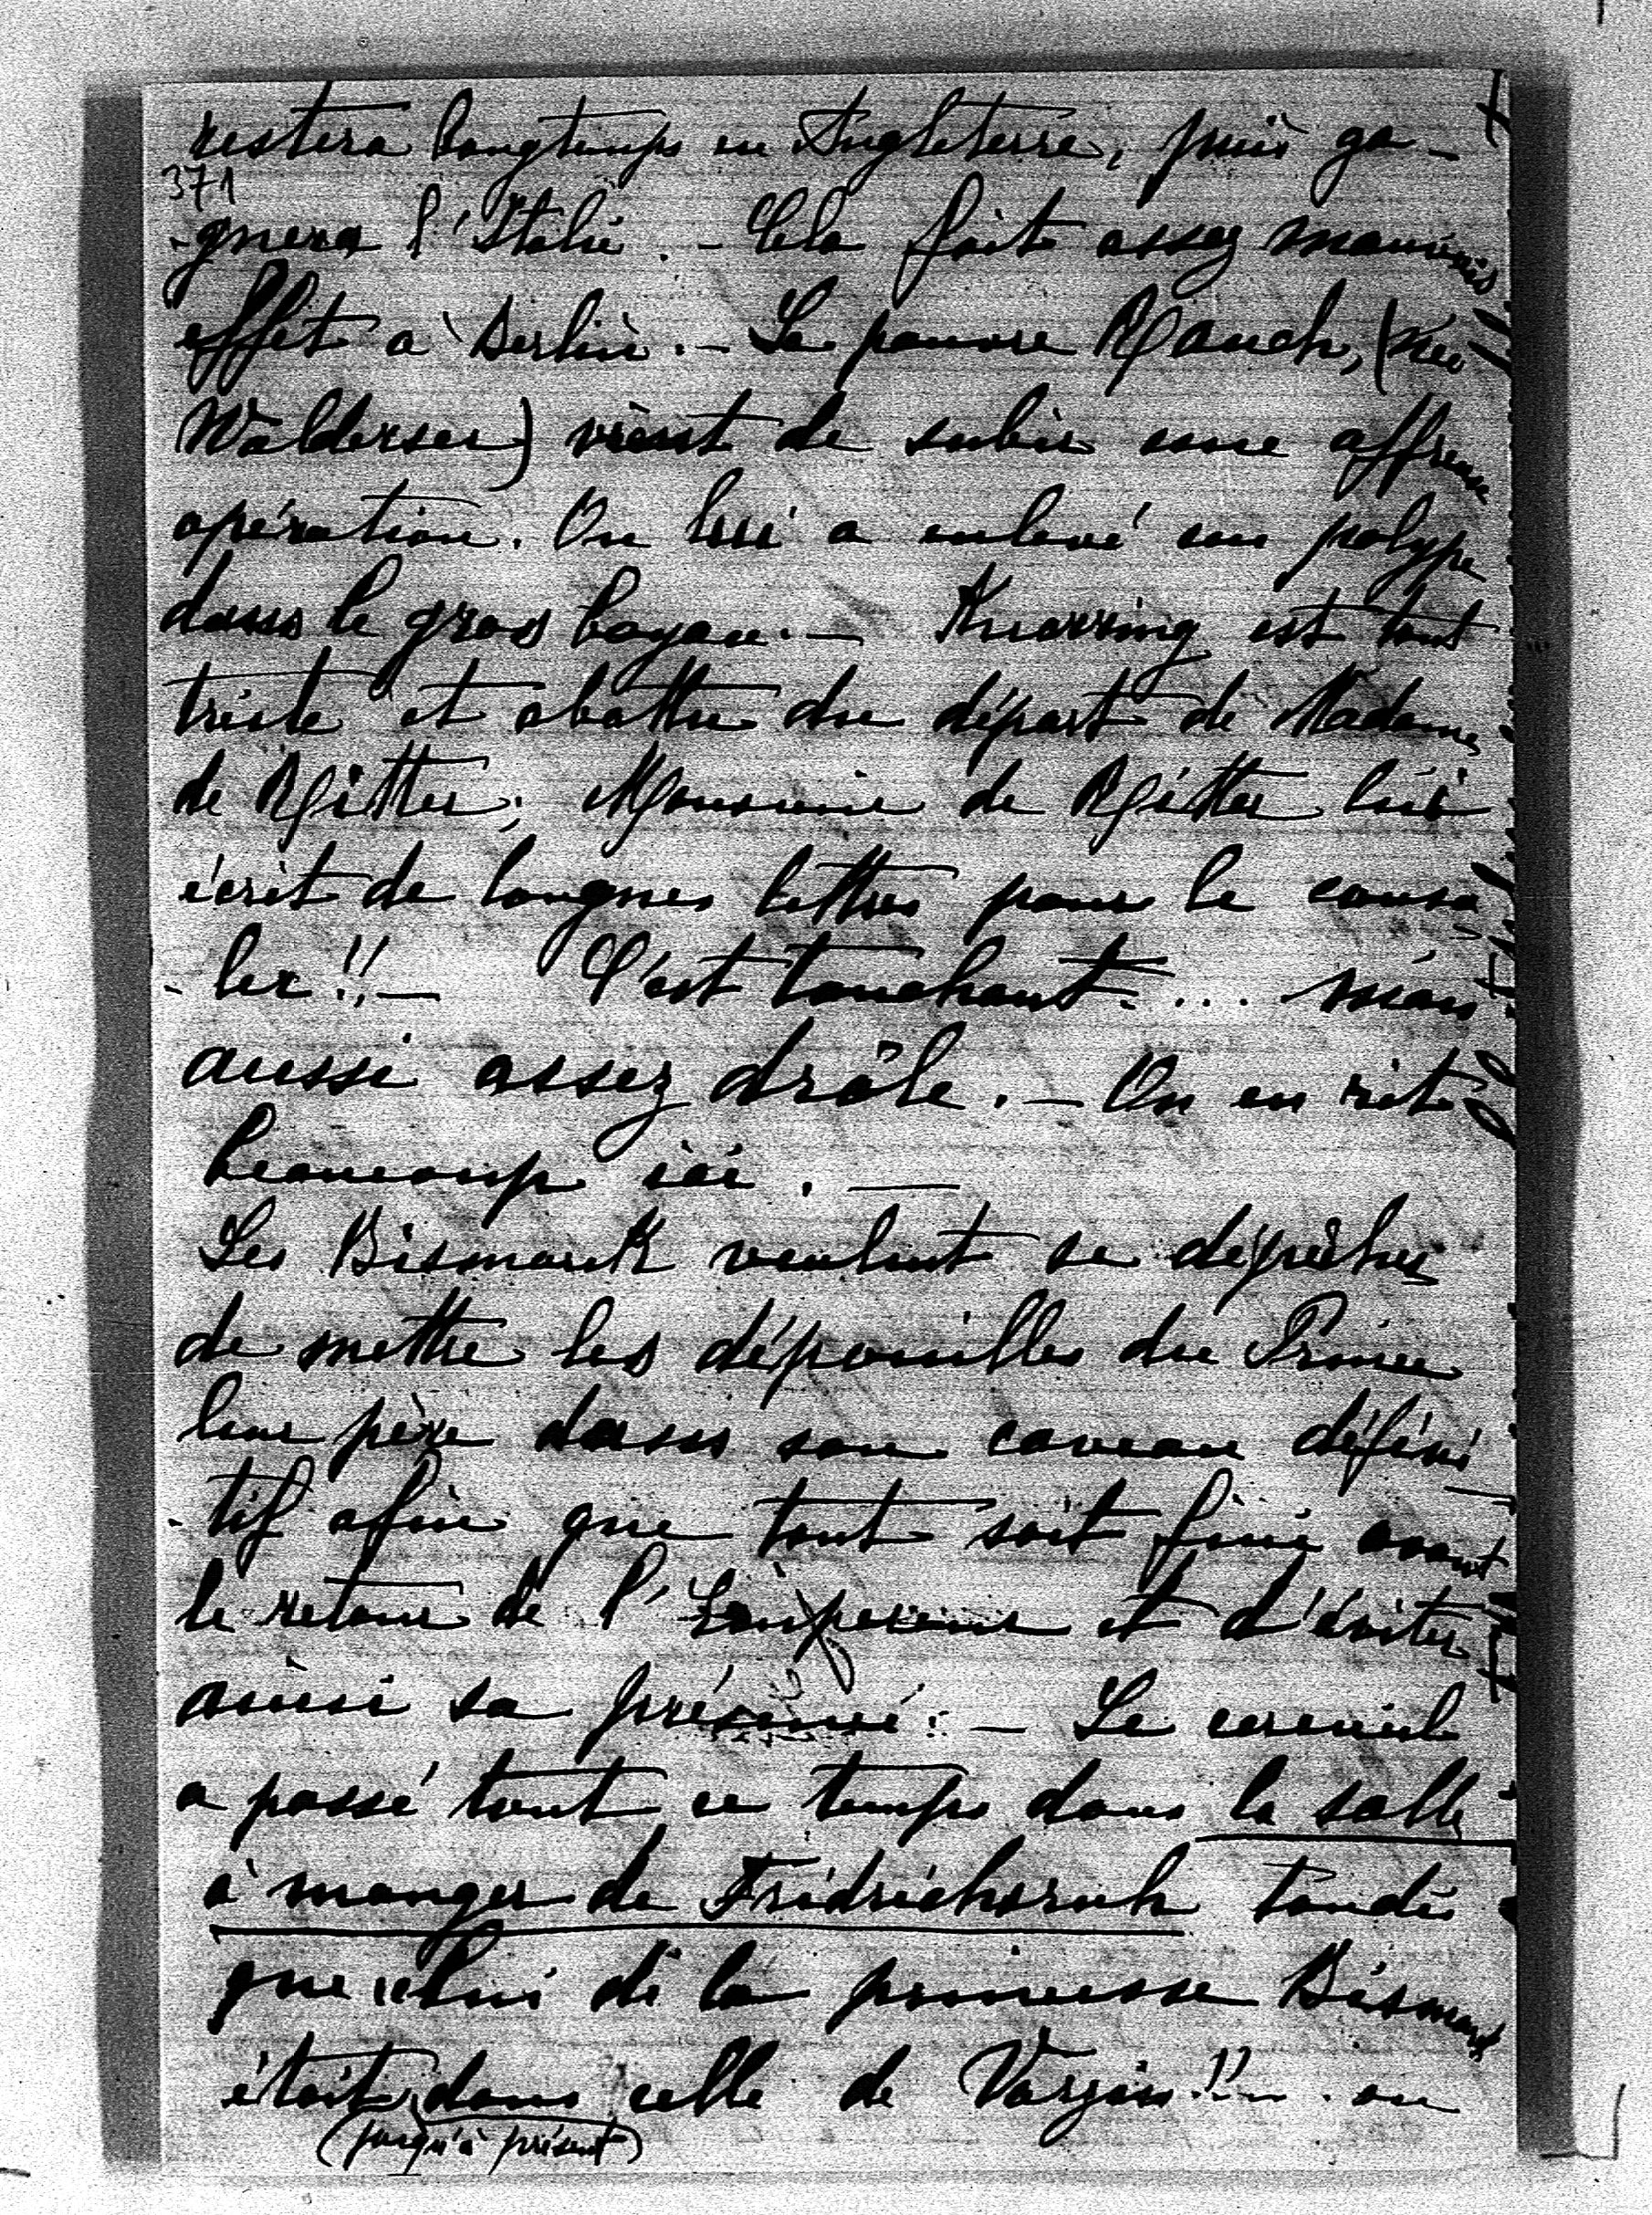 restera longtemps en Angleterre, puis ga-
371
-gnera l'Italie. - Cela fait assez mauvais
effet à Berlin. - Le pauvre Rauch, (née
Waldersee) vient de subir une affreuse
opération. On lui a enlevé un polype
dans le gros boyau. - Knorring est tout
triste et abattu du départ de Madame
de Ritter; Monsieur de Ritter lui
écrit de longues lettres pour le conso
-ler!! - C'est touchant.... mais
aussi assez drôle. - On en rit
beaucoup ici. -
Les Bismarck veulent se dépêcher
de mettre les dépouilles du Prince
leur père dans son caveau défini
-tif afin que tout soit fini avant
le retour de l'Empereur et d'éviter
ainsi sa présence. - Le cercueil
a passé tout ce temps dans la salle
à manger de Fridrichsruh tandis
que celui de la princesse Bismark
était dans celle de Varzin!! ou
(jusqu'à présent)